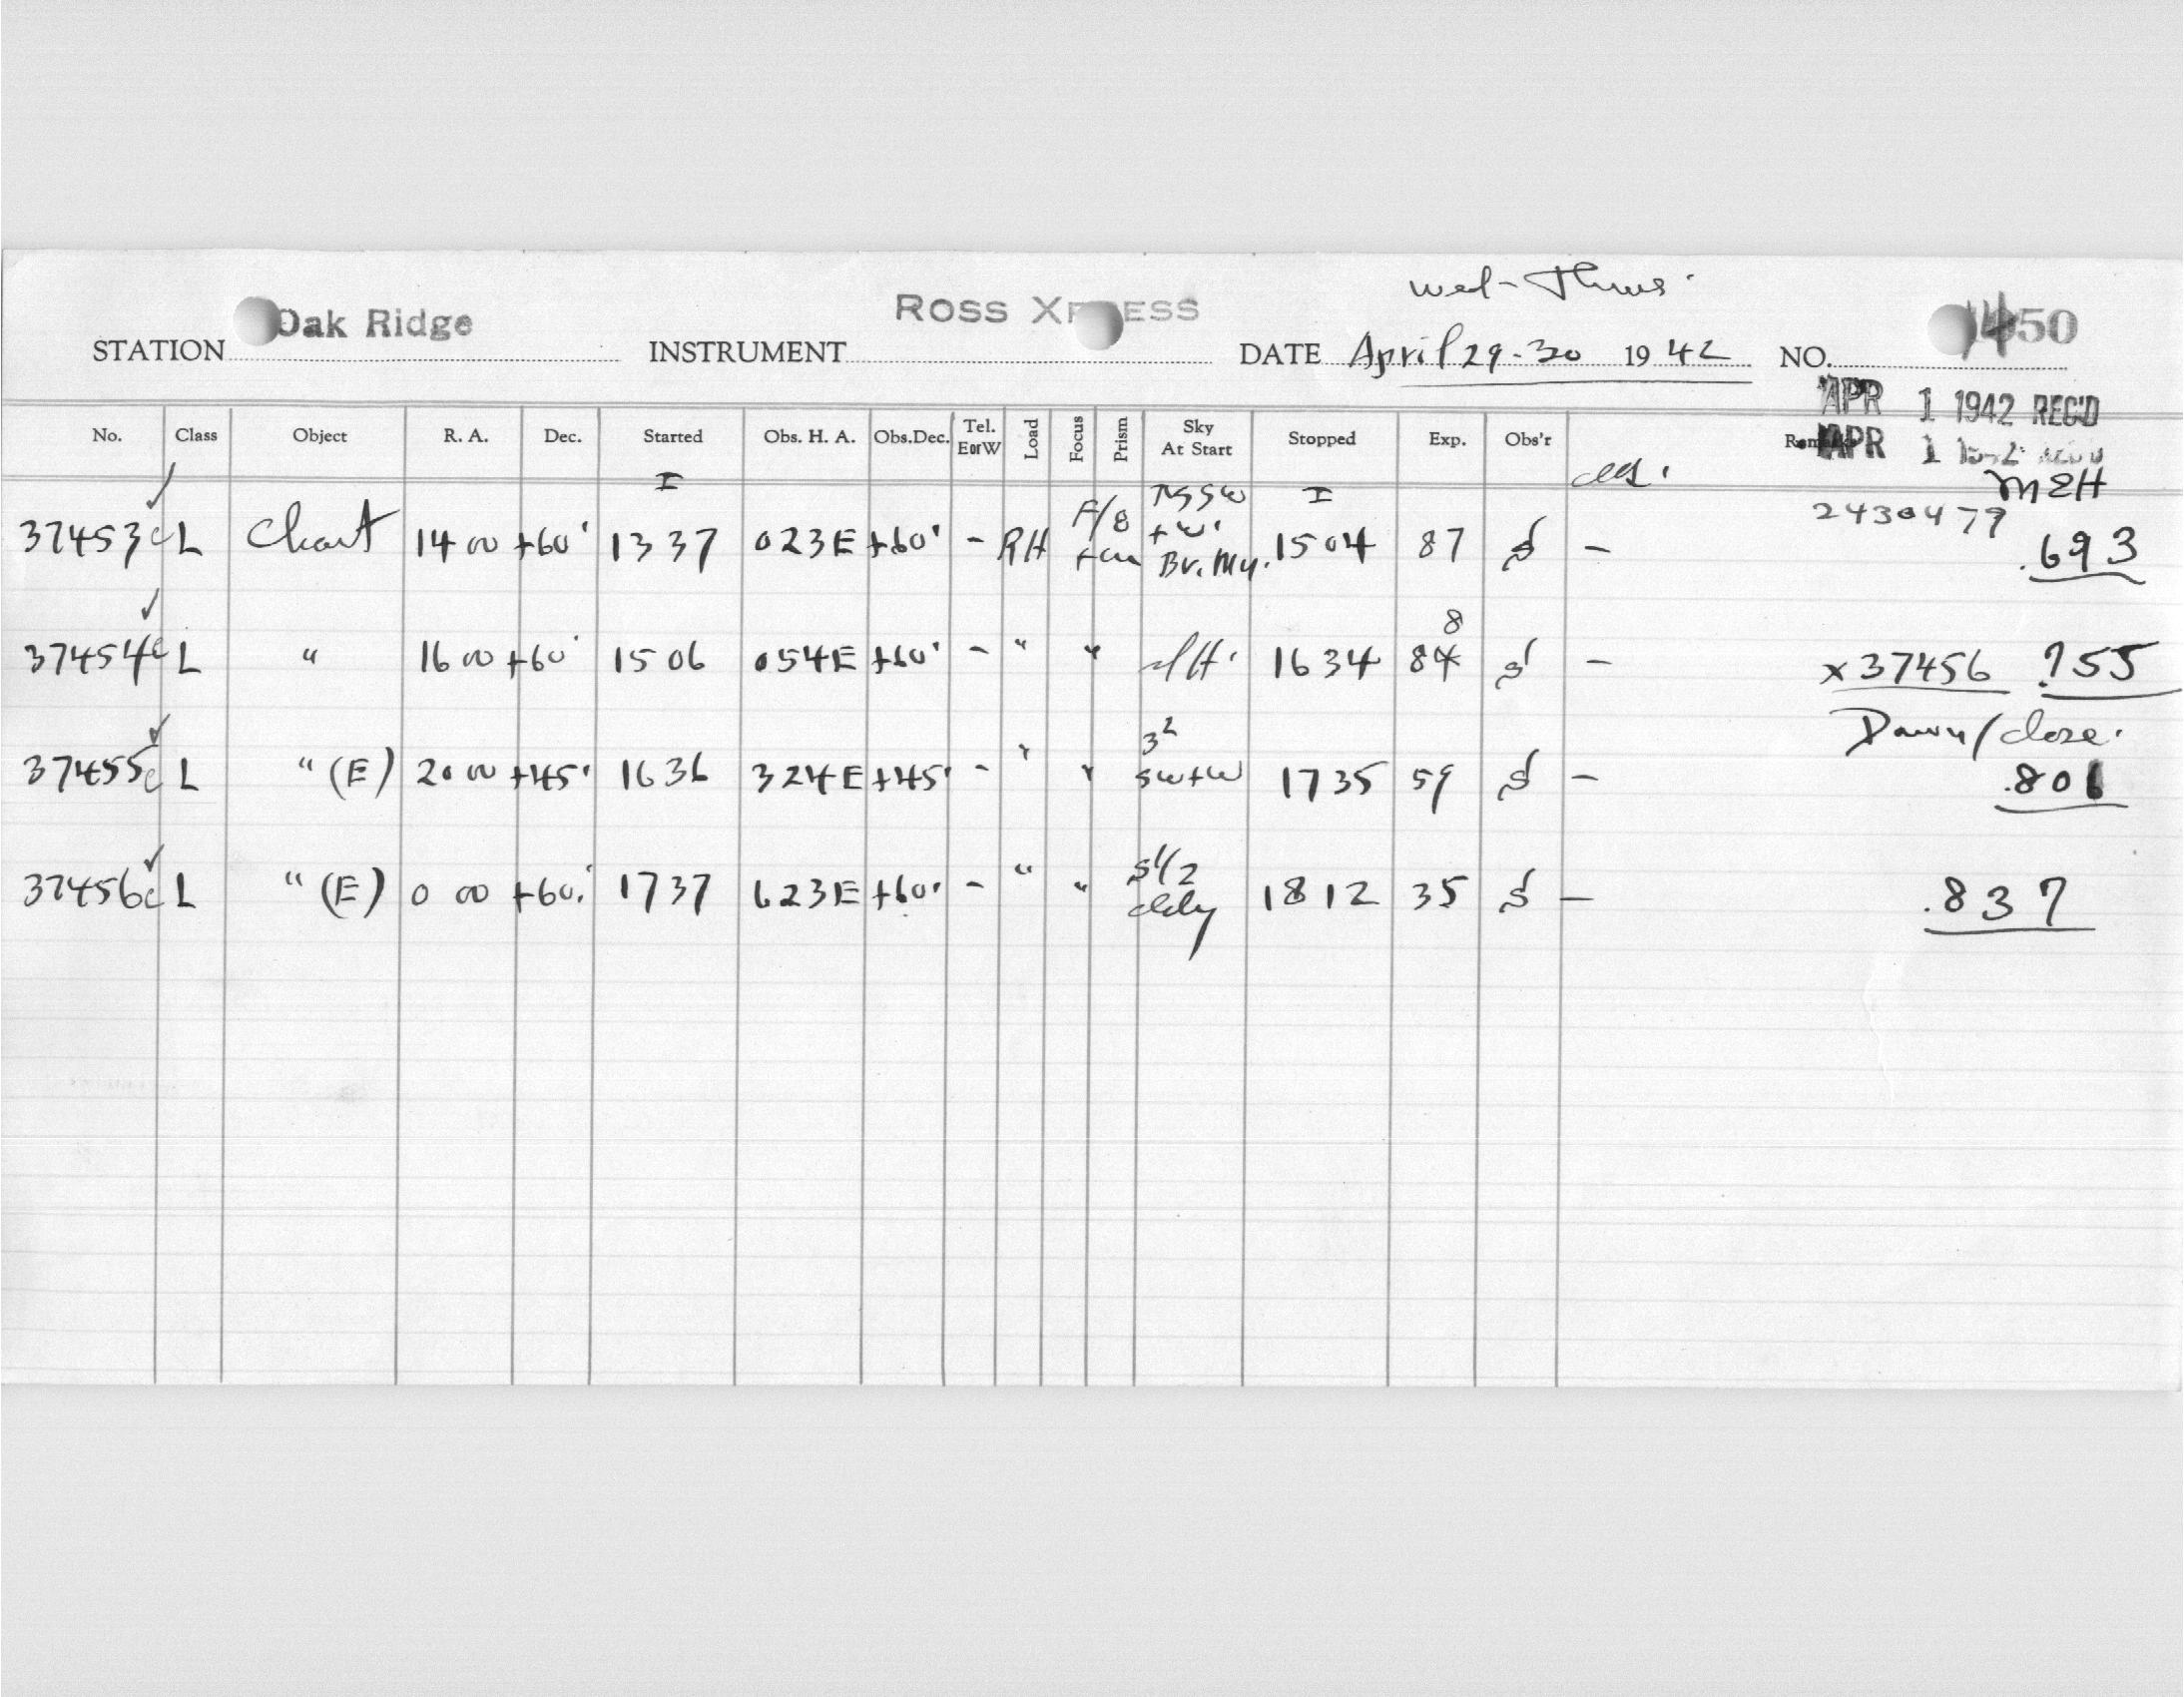 Wed-Thurs.
STATION Oak Ridge INSTRUMENT ROSS XPRESS DATE April 29-30 1942 NO. 50
APR 1 1942 REC'D
APR 1
No. Class Object R. A. Dec. Started Obs. H. A. Obs.Dec. Tel. EorW Load Focus Prism Sky At Start Stopped Exp. Obs'r Remarks
MEH
I I 2430479
37453c L Chart 14 00 +60° 1337 023E +60° - RH F/8 Br. 1504 87 - .693
37454c L " 16 00 +60° 1506 054E +60° - " " 1634 88 - x 37456 .755
Dawn/close.
37455c L " (E) 20 00 +45° 1636 324E +45° - " " 3² SW+W 1735 59 - .801
37456c L " (E) 0 00 +60° 1737 623E +60° - " " S 1/2 cldy 1812 35 - .837